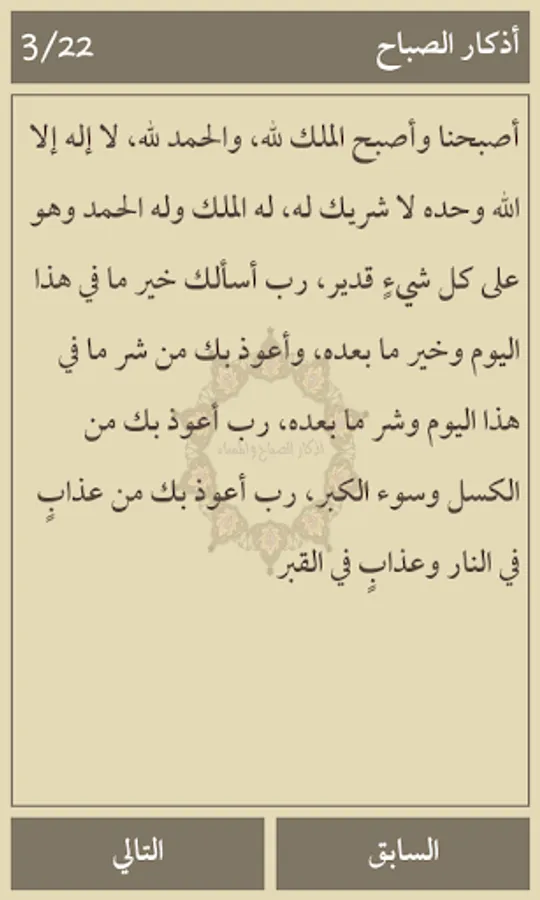 أذكار الصباح
3/22
أصبحنا وأصبح الملك لله، والحمد لله، لا إله إلا
الله وحده لا شريك له، له الملك وله الحمد وهو
على كل شيءٍ قدير، رب أسألك خير ما في هذا
اليوم وخير ما بعده، وأعوذ بك من شر ما في
هذا اليوم وشر ما بعده، رب أعوذ بك من
الكسل وسوء الكبر، رب أعوذ بك من عذابٍ
في النار وعذابٍ في القبر
اذكار الصباح والمساء
السابق
التالي